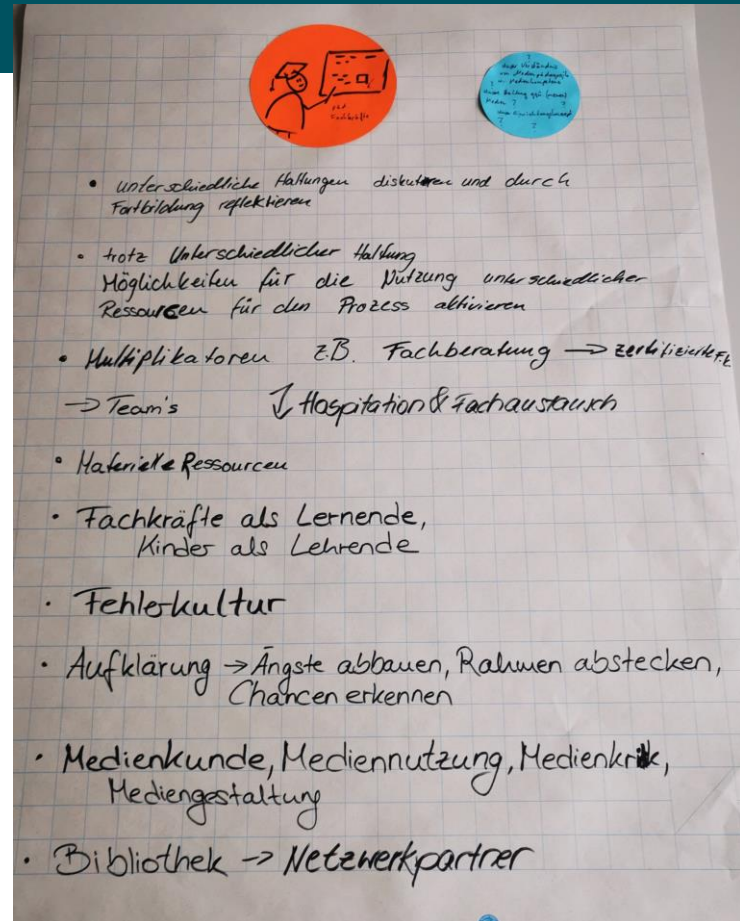 für
Fachkräfte
?
unser Verständnis
von Medienpädagogik
?
unsere Haltung ggü. (neuen)
Medien ? ?
?
?
• unterschiedliche Haltungen diskutieren und durch
Fortbildung reflektieren
• trotz Unterschiedlicher Haltung
Möglichkeiten für die Nutzung unterschiedlicher
Ressourcen für den Prozess aktivieren
• Multiplikatoren z.B. Fachberatung → zertifizierte F.k
→ Team's ↓ Hospitation & Fachaustausch
• Materielle Ressourcen
• Fachkräfte als Lernende,
Kinder als Lehrende
• Fehlerkultur
• Aufklärung → Ängste abbauen, Rahmen abstecken,
Chancen erkennen
• Medienkunde, Mediennutzung, Medienkritik,
Mediengestaltung
• Bibliothek → Netzwerkpartner